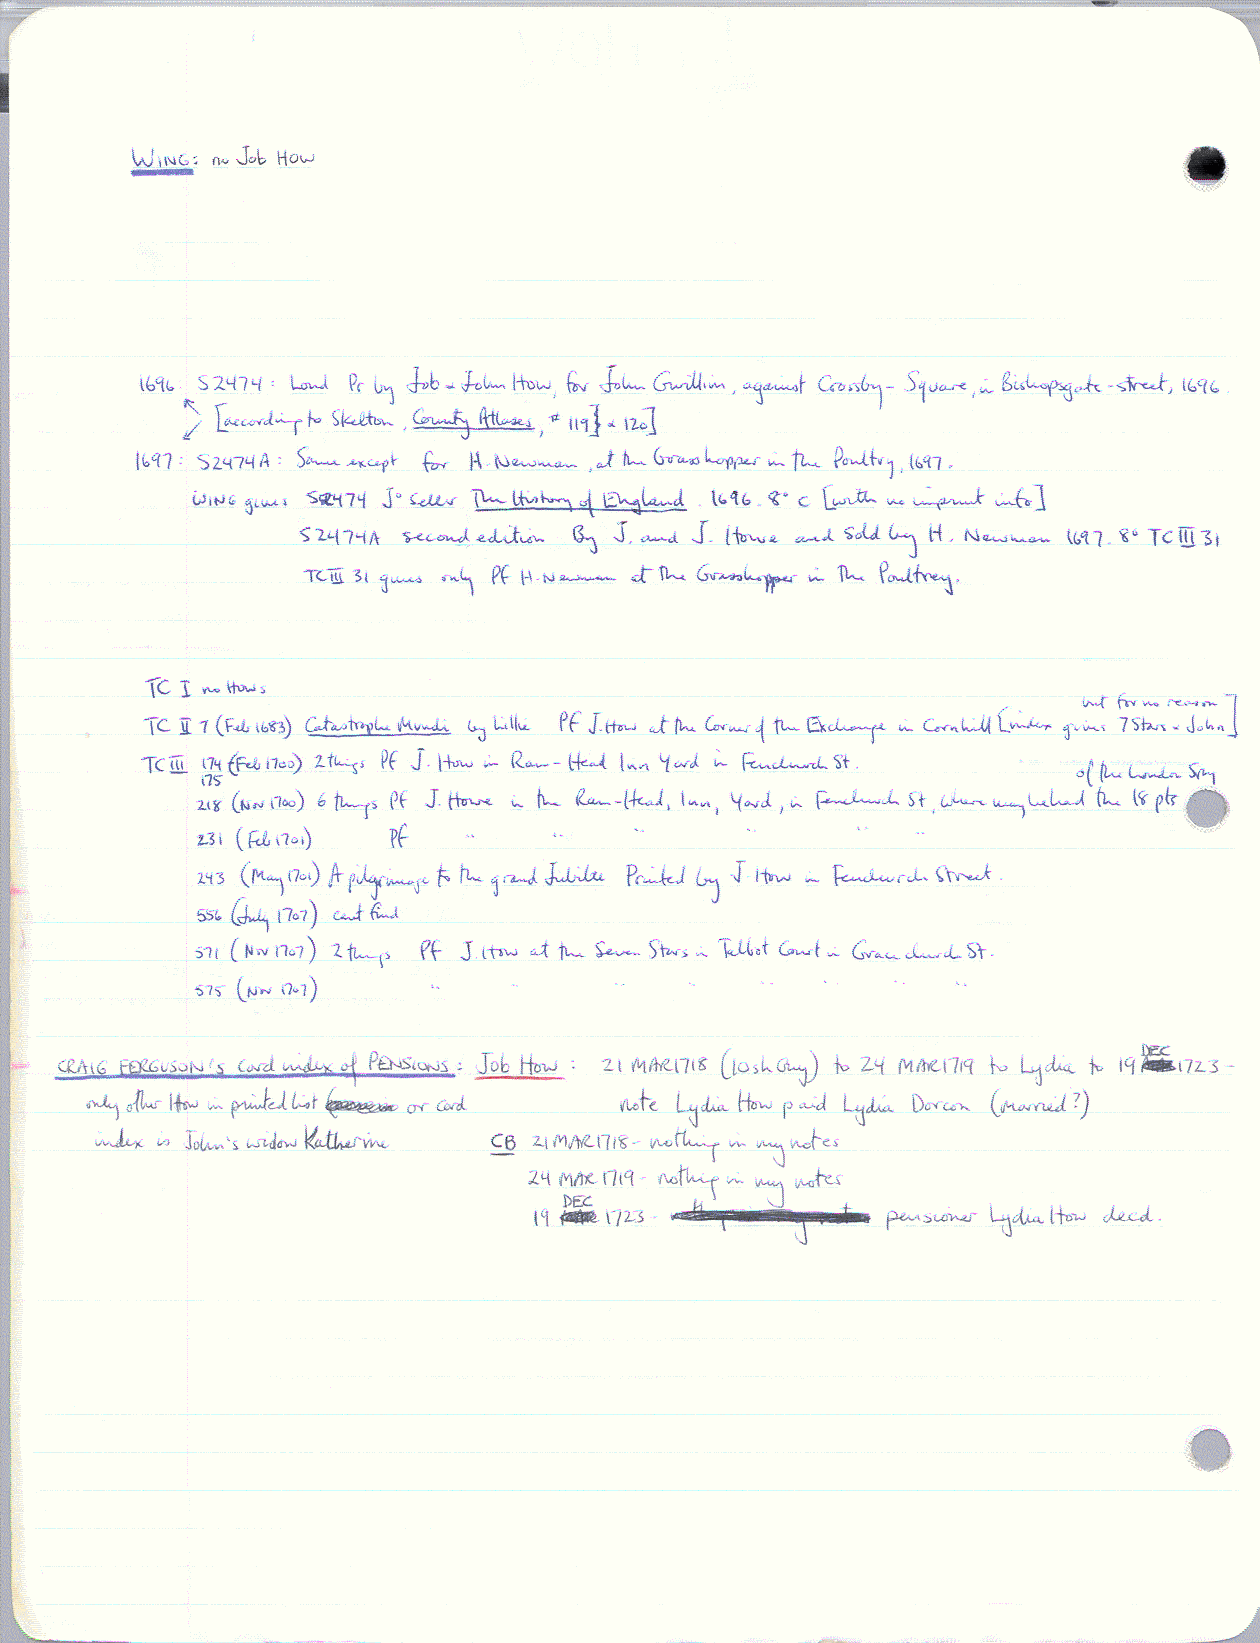 WING: no Job How
1696 S2474: Lond Pr by Job & John How, for John Gwillim, against Crossby-Square, in Bishopsgate-street, 1696.
[according to Skelton, County Atlases, # 119} & 120]
1697: S2474A: Same except for H. Newman, at the Grasshopper in the Poultry, 1697.
WING gives S2474 Jo Seller The History of England. 1696. 8° c [with no imprint info]
S2474A second edition By J. and J. Howe and sold by H. Newman 1697. 8° TC III 31
TC III 31 gives only Pf H. Newman at the Grasshopper in the Poultrey.
TC I no Hows
but for no reason
TC II 7 (Feb 1683) Catastrophe Mundi by Lillie Pf J. How at the Corner of the Exchange in Cornhill [index gives 7 Stars & John]
TC III 174 (Feb 1700) 2 things Pf J. How in Ram-Head Inn Yard in Fenchurch St.
175
of the London Spy
218 (Nov 1700) 6 things Pf J. Howe in the Ram-Head, Inn, Yard, in Fenchurch St, where may be had the 18 pts
231 (Feb 1701) Pf " " " " " "
243 (May 1701) A pilgrimage to the grand Jubilee Printed by J. How in Fenchurch Street.
556 (July 1707) cant find
571 (Nov 1707) 2 things Pf J. How at the Seven Stars in Talbot Court in Gracechurch St.
575 (Nov 1707) " " " " " " " "
DEC
CRAIG FERGUSON's card index of PENSIONS: Job How: 21 MAR 1718 (10sh Qry) to 24 MAR 1719 to Lydia to 19 1723 -
only other How in printed list or card note Lydia How paid Lydia Dorcon (married?)
index is John's widow Katherine CB 21 MAR 1718 - nothing in my notes
24 MAR 1719 - nothing in my notes
DEC
19 1723 - pensioner Lydia How decd.